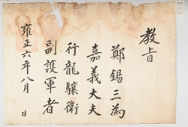 教旨
鄭錫三為
嘉義大夫
行龍驤衛
副護軍者
雍正六年八月 日